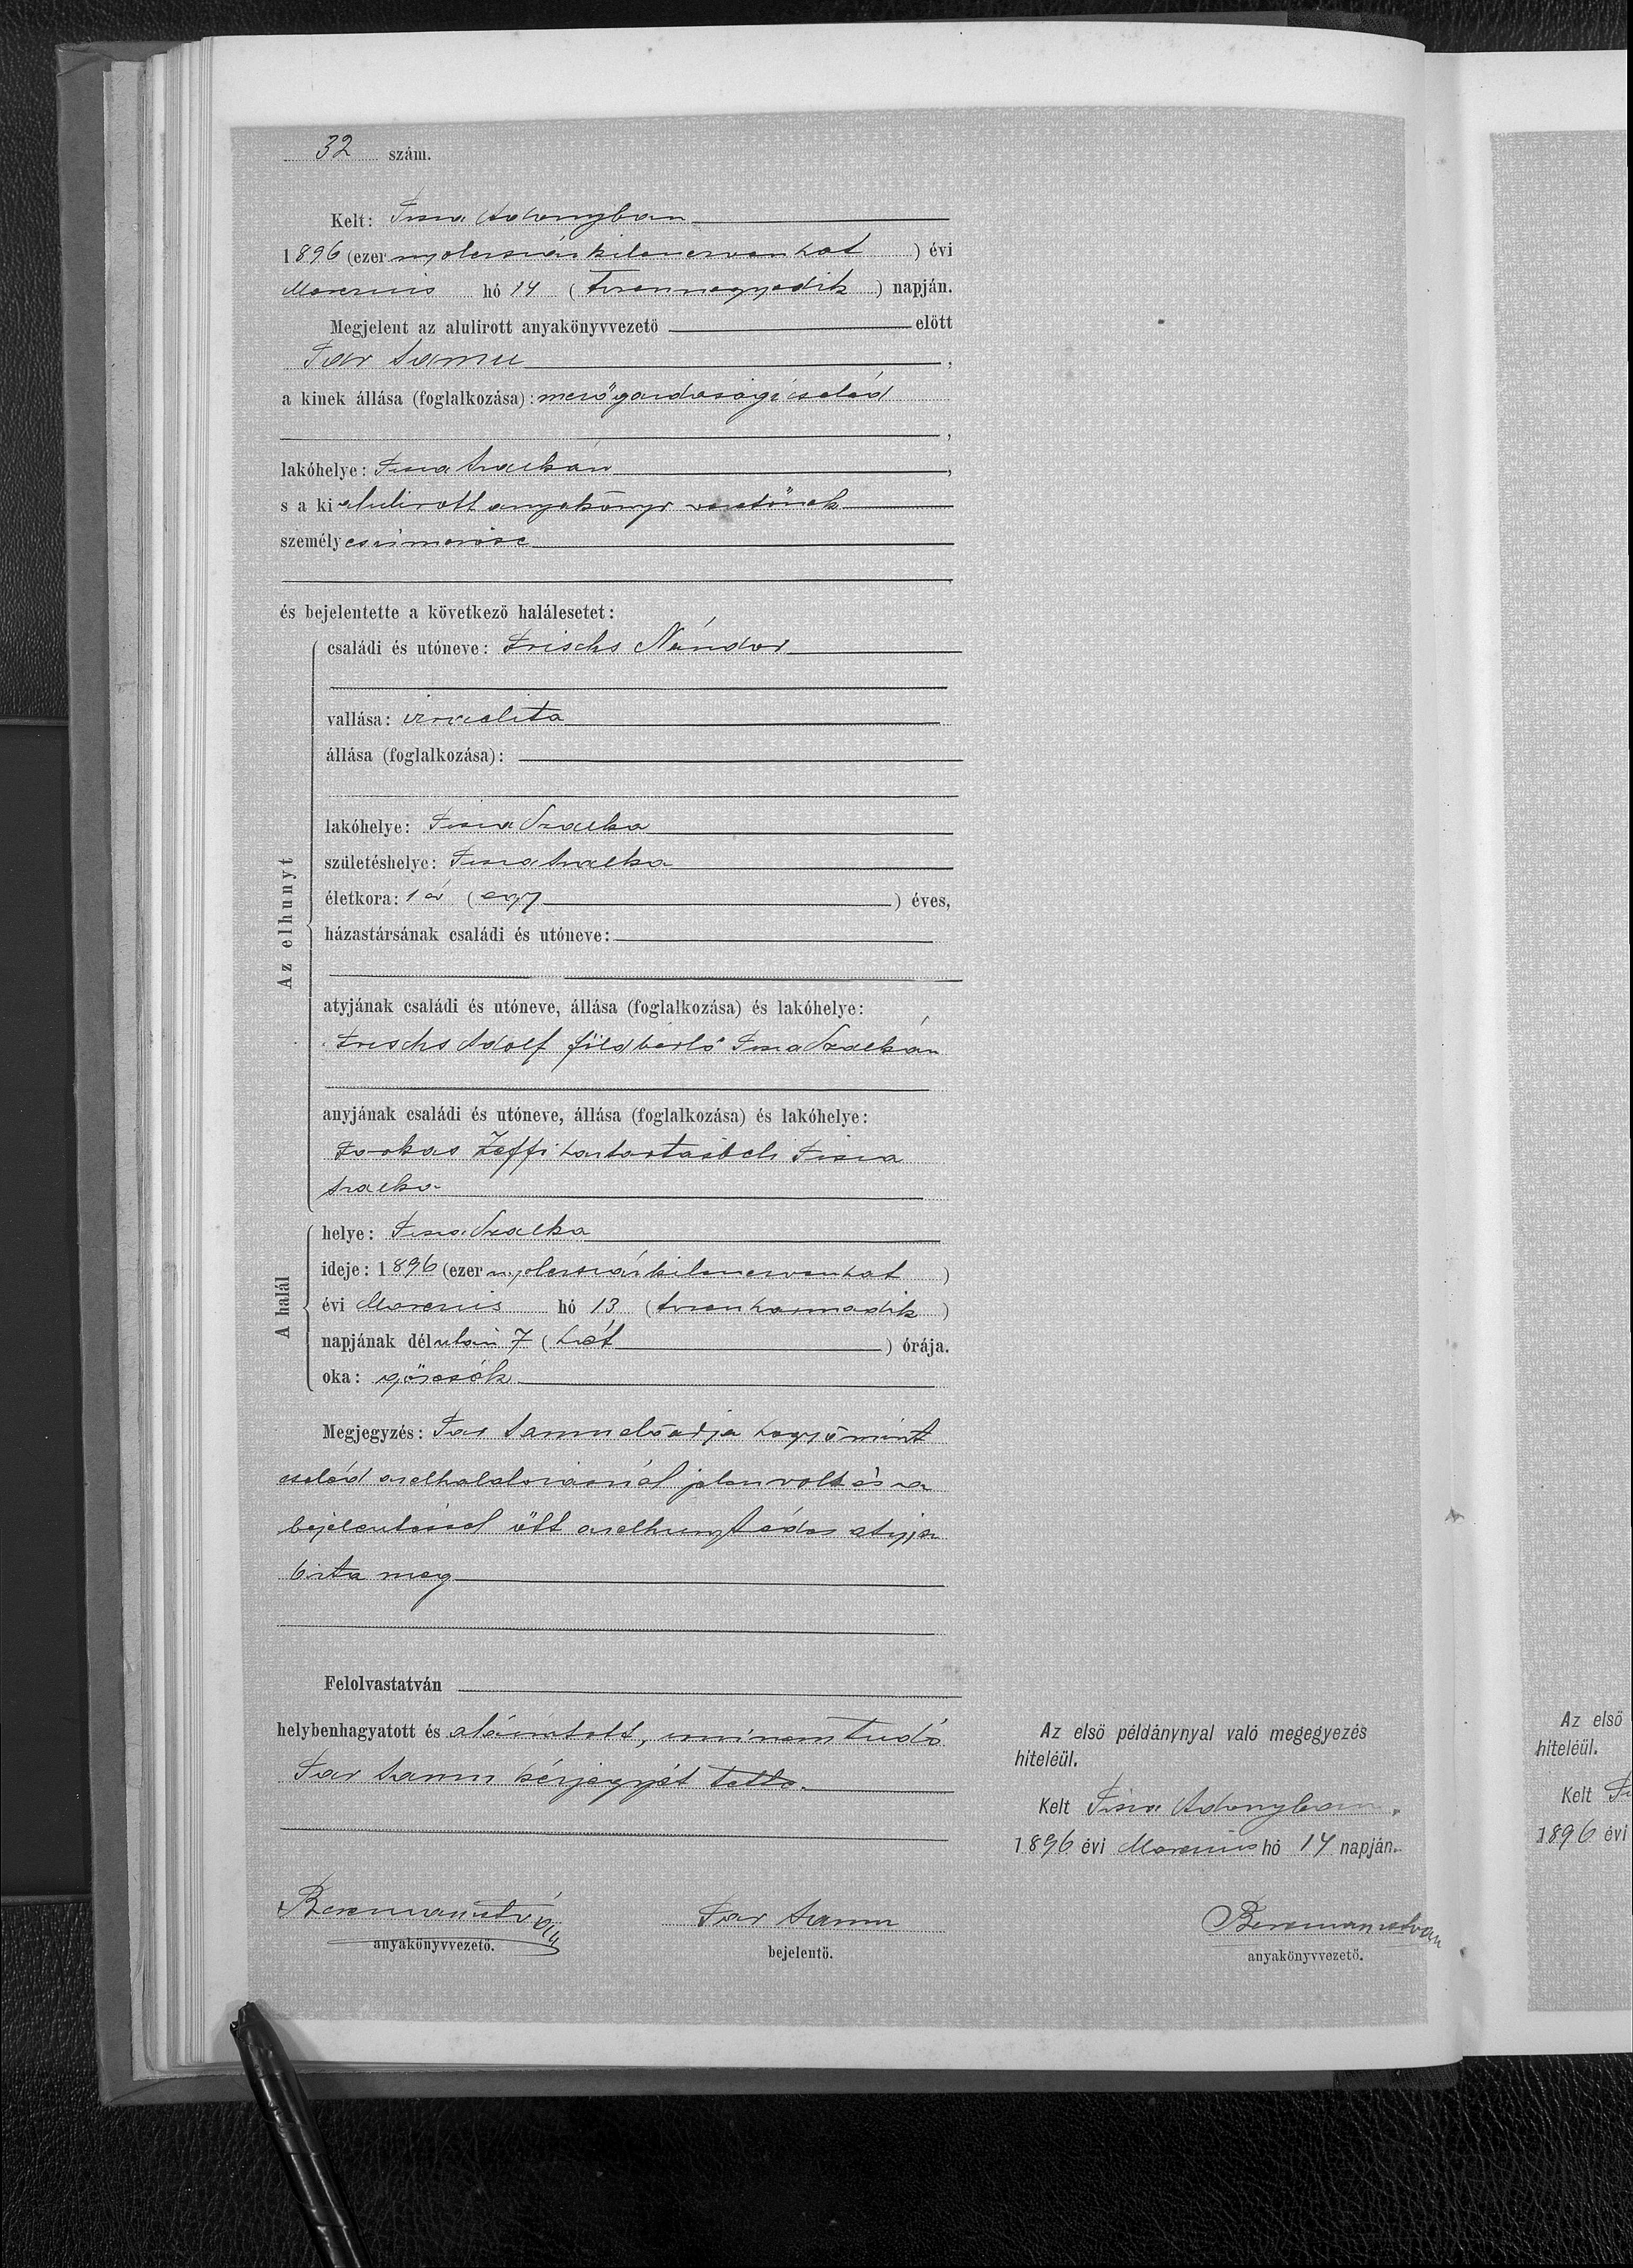 32 szám.
Kelt: Tisza Adonyban
1896 (ezer nyolczszázkilenczvenhat) évi
Marczius hó 14 (tizennegyedik) napján.
Megjelent az alulirott anyakönyvvezető előtt
Far Samu,
a kinek állása (foglalkozása): mezőgazdasági cseléd
,
lakóhelye: Tisza Szalkán,
s a ki alulirott anyakönyv vezetőnek
személyes ismerőse
és bejelentette a következő halálesetet:
Az elhunyt
családi és utóneve: Frischs Nándor
vallása: izraelita
állása (foglalkozása):
lakóhelye: Tisza Szalka
születéshelye: Tisza Szalka
életkora: 1 év (egy) éves,
házastársának családi és utóneve:
atyjának családi és utóneve, állása (foglalkozása) és lakóhelye:
Frischs Adolf földbérlő Tisza Szalkán
anyjának családi és utóneve, állása (foglalkozása) és lakóhelye:
Farkas Zeffi háztartásbeli Tisza
Szalka
A halál
helye: Tisza Szalka
ideje: 1896 (ezer nyolczszázkilenczvenhat)
évi Marczius hó 13 (tizenharmadik)
napjának délután 7 (hét) órája.
oka: görcsök
Megjegyzés: Far Samu előadja hogy ő mint
cseléd az elhalálozásnál jelen volt és a
bejelentéssel őtt az elhunyt édes atyja
bizta meg
Felolvastatván
helybenhagyatott és aláiratott, irni nem tudó
Far Samu kézjegyét tette.
Bereznan István
anyakönyvvezető.
Far Samu
bejelentő.
Az első példánynyal való megegyezés
hiteléül.
Kelt Tisza Adonyban,
1896 évi Marczius hó 14 napján.
anyakönyvvezető.
Az első
hiteléül.
Kelt Ti
1896 évi